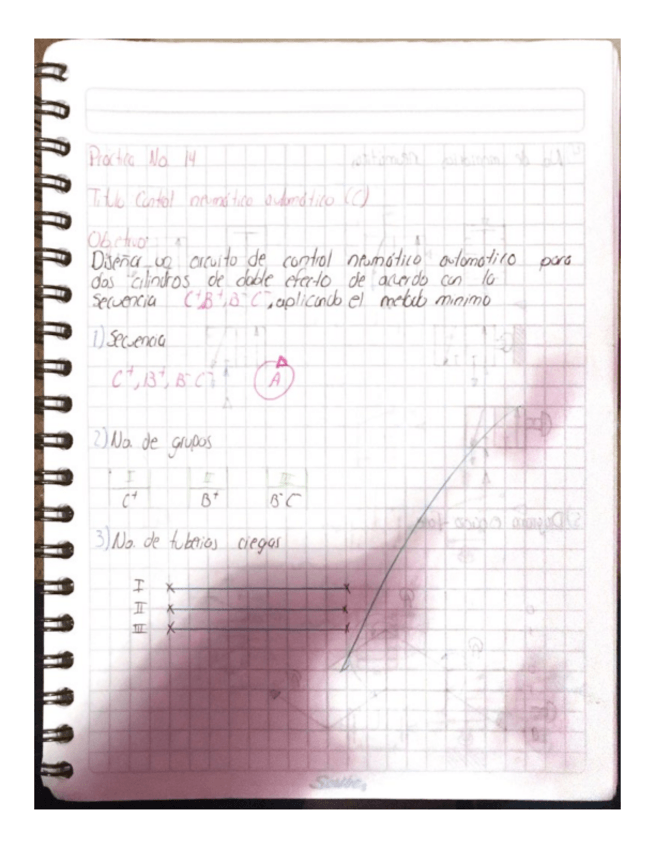 Practica No. 14
Titulo Control neumático automático (C)
Objetivo:
Diseñar un circuito de control neumático automático para
dos cilindros de doble efecto de acuerdo con la
secuencia C⁺,B⁺,B⁻C⁻, aplicando el metodo minimo
1) Secuencia
C⁺, B⁺, B⁻C⁻ A
2) No. de grupos
I II III
C⁺ B⁺ B⁻C⁻
3) No. de tuberias ciegas
I x x
II x x
III x x
Scribe